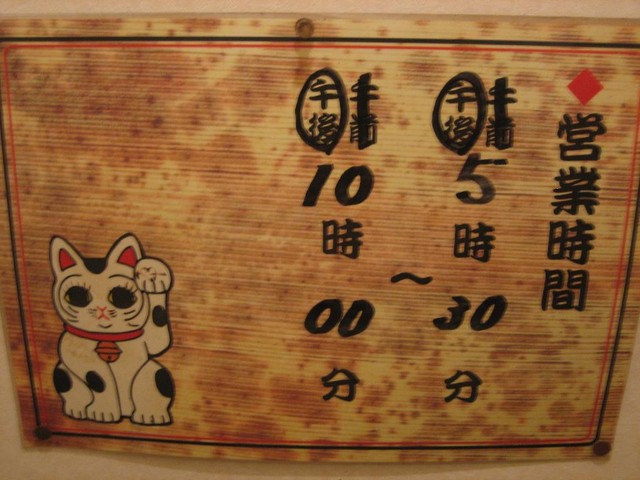 ◆営業時間
午前 午後 5時30分
～
午前 午後 10時00分